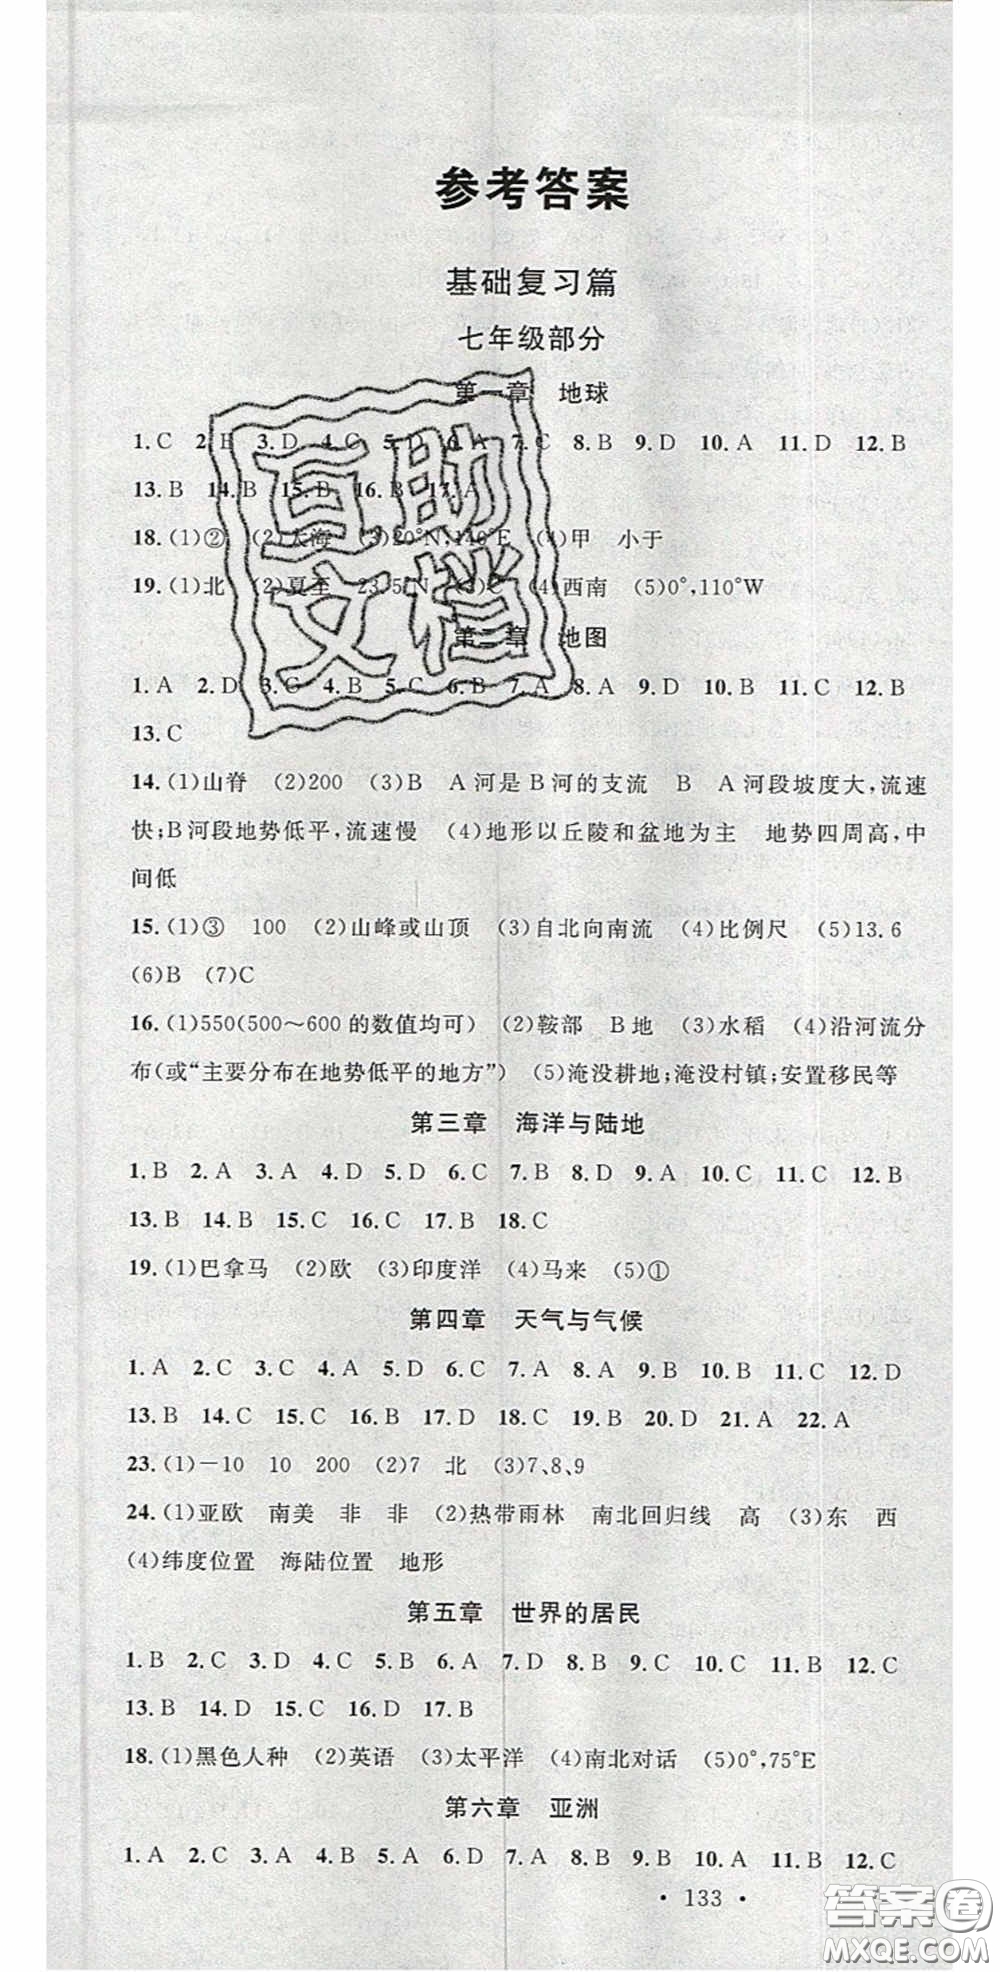 参考答案
基础复习篇
七年级部分
第一章 地球
1.C 2.B 3.D 4.C 5.D 6.A 7.C 8.B 9.D 10.A 11.D 12.B
13.B 14.B 15.D 16.B 17.A
18.(1)② (2)大海 (3)20°N,140°E (4)甲 小于
19.(1)北 (2)夏至 23.5°N (3)C (4)西南 (5)0°,110°W
第二章 地图
1.A 2.D 3.C 4.B 5.C 6.B 7.A 8.A 9.D 10.B 11.C 12.B
13.C
14.(1)山脊 (2)200 (3)B A河是B河的支流 B A河段坡度大,流速
快;B河段地势低平,流速慢 (4)地形以丘陵和盆地为主 地势四周高,中
间低
15.(1)③ 100 (2)山峰或山顶 (3)自北向南流 (4)比例尺 (5)13.6
(6)B (7)C
16.(1)550(500～600的数值均可) (2)鞍部 B地 (3)水稻 (4)沿河流分
布(或“主要分布在地势低平的地方”) (5)淹没耕地;淹没村镇;安置移民等
第三章 海洋与陆地
1.B 2.A 3.A 4.D 5.D 6.C 7.B 8.D 9.A 10.C 11.C 12.B
13.B 14.B 15.C 16.C 17.B 18.C
19.(1)巴拿马 (2)欧 (3)印度洋 (4)马来 (5)①
第四章 天气与气候
1.A 2.C 3.C 4.A 5.D 6.C 7.A 8.A 9.B 10.B 11.C 12.D
13.B 14.C 15.C 16.B 17.D 18.C 19.B 20.D 21.A 22.A
23.(1)－10 10 200 (2)7 北 (3)7、8、9
24.(1)亚欧 南美 非 非 (2)热带雨林 南北回归线 高 (3)东 西
(4)纬度位置 海陆位置 地形
第五章 世界的居民
1.B 2.C 3.D 4.C 5.B 6.A 7.D 8.B 9.C 10.C 11.B 12.C
13.B 14.D 15.C 16.D 17.B
18.(1)黑色人种 (2)英语 (3)太平洋 (4)南北对话 (5)0°,75°E
第六章 亚洲
1.A 2.C 3.A 4.B 5.A 6.D 7.A 8.B 9.A 10.A 11.B 12.C
• 133 •
互助
文档
答案圈
MXQE.COM